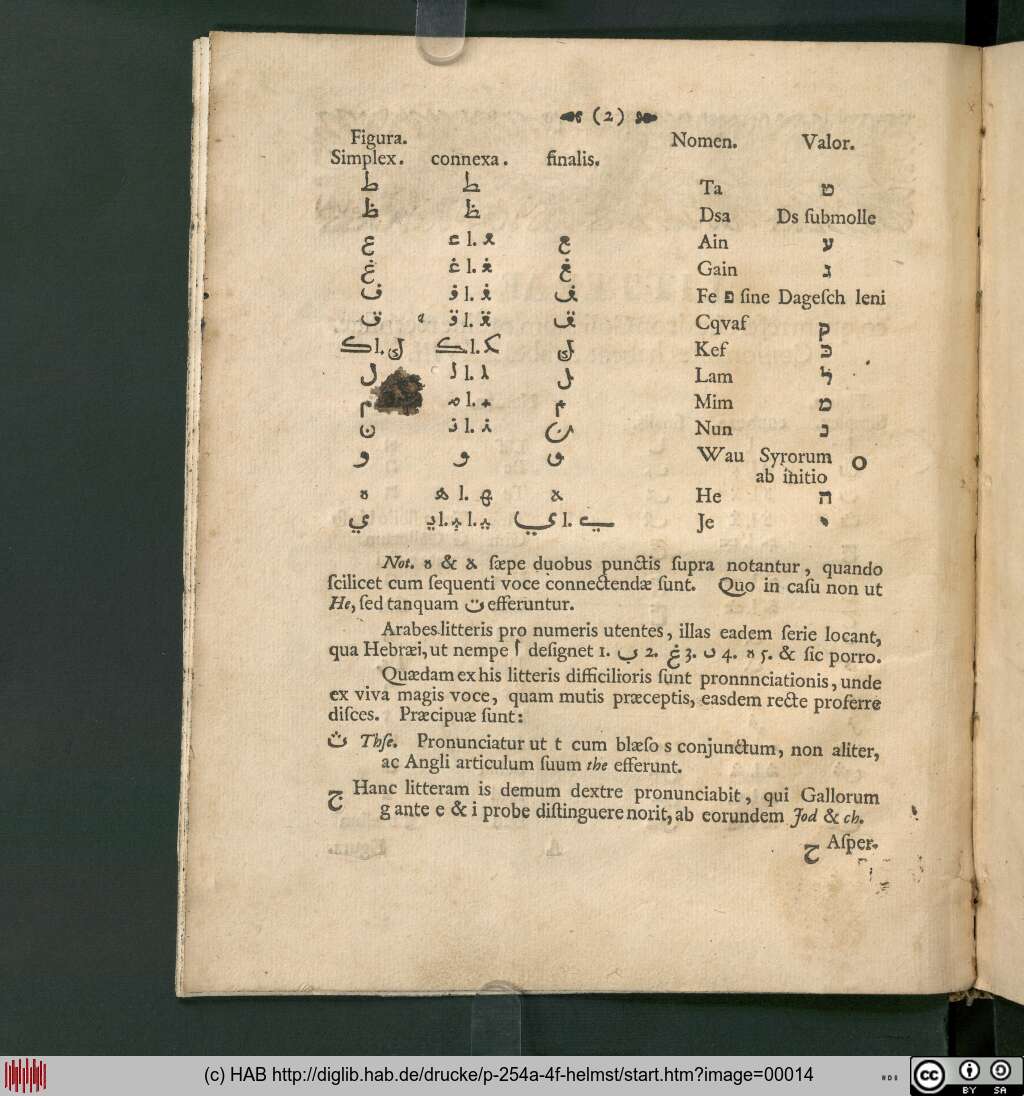 (2)
Figura. Nomen. Valor.
Simplex. connexa. finalis.
ط ط Ta ט
ظ ظ Dsa Ds ſubmolle
ع ع l. ع ع Ain ע
غ غ l. غ غ Gain ג
ف ف l. ف ف Fe פ ſine Dageſch leni
ق ق l. ق ق Cqvaf ק
ك l. ك ك l. ك ك Kef כ
ل ل l. ل ل Lam ל
م م l. م م Mim מ
ن ن l. ن ن Nun נ
و و و Wau Syrorum ο
ab initio
ه ه l. ه ه He ה
ي ي l. ي l. ي ي l. ي Je י
Not. ه & ه ſæpe duobus punctis ſupra notantur, quando
ſcilicet cum ſequenti voce connectendæ ſunt. Quo in caſu non ut
He, ſed tanquam ت efferuntur.
Arabes litteris pro numeris utentes, illas eadem ſerie locant,
qua Hebræi, ut nempe أ deſignet 1. ب 2. غ 3. د 4. ه 5. & ſic porro.
Quædam ex his litteris difficilioris ſunt pronnnciationis, unde
ex viva magis voce, quam mutis præceptis, easdem recte proferre
diſces. Præcipuæ ſunt:
ث Thſe. Pronunciatur ut t cum blæſo s conjunctum, non aliter,
ac Angli articulum ſuum the efferunt.
ج Hanc litteram is demum dextre pronunciabit, qui Gallorum
g ante e & i probe diſtinguere norit, ab eorundem Jod & ch.
ح Aſper.
(c) HAB http://diglib.hab.de/drucke/p-254a-4f-helmst/start.htm?image=00014
cc BY SA